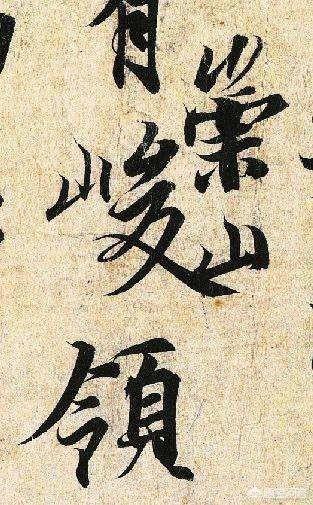 有
崇山
峻領